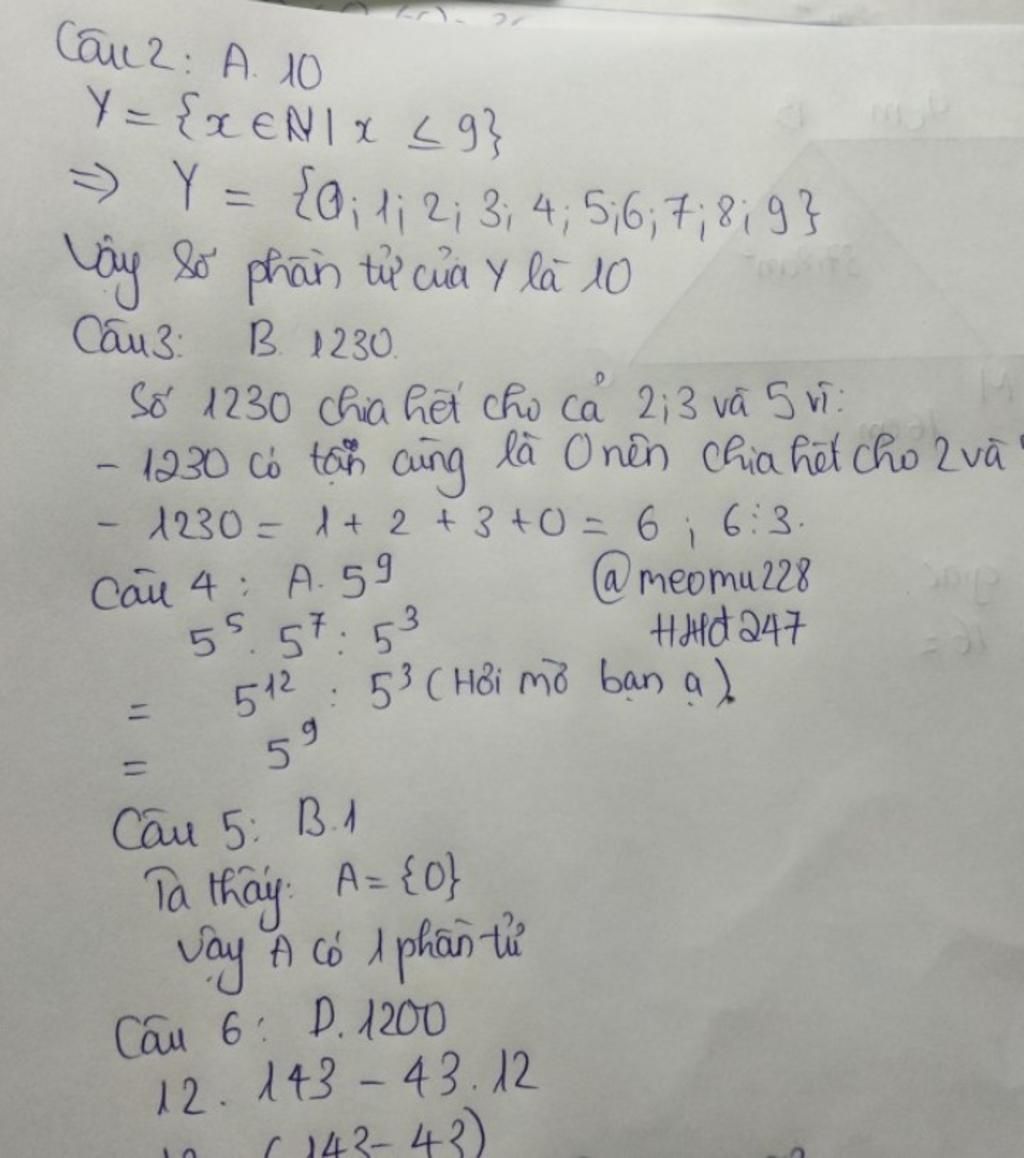 Câu 2: A. 10
Y = {x ∈ N | x ≤ 9}
⇒ Y = {0; 1; 2; 3; 4; 5; 6; 7; 8; 9}
Vậy số phần tử của Y là 10
Câu 3: B. 1230.
Số 1230 chia hết cho cả 2; 3 và 5 vì:
- 1230 có tận cùng là 0 nên chia hết cho 2 và
- 1230 = 1 + 2 + 3 + 0 = 6 ; 6 ⋮ 3.
Câu 4 : A. 5⁹
@meomu228
5⁵ . 5⁷ : 5³
HHđ247
= 5¹² : 5³ (Hơi mờ bạn ạ).
= 5⁹
Câu 5: B. 1
Ta thấy: A = {0}
Vậy A có 1 phần tử
Câu 6: D. 1200
12 . 143 - 43 . 12
(143 - 43)